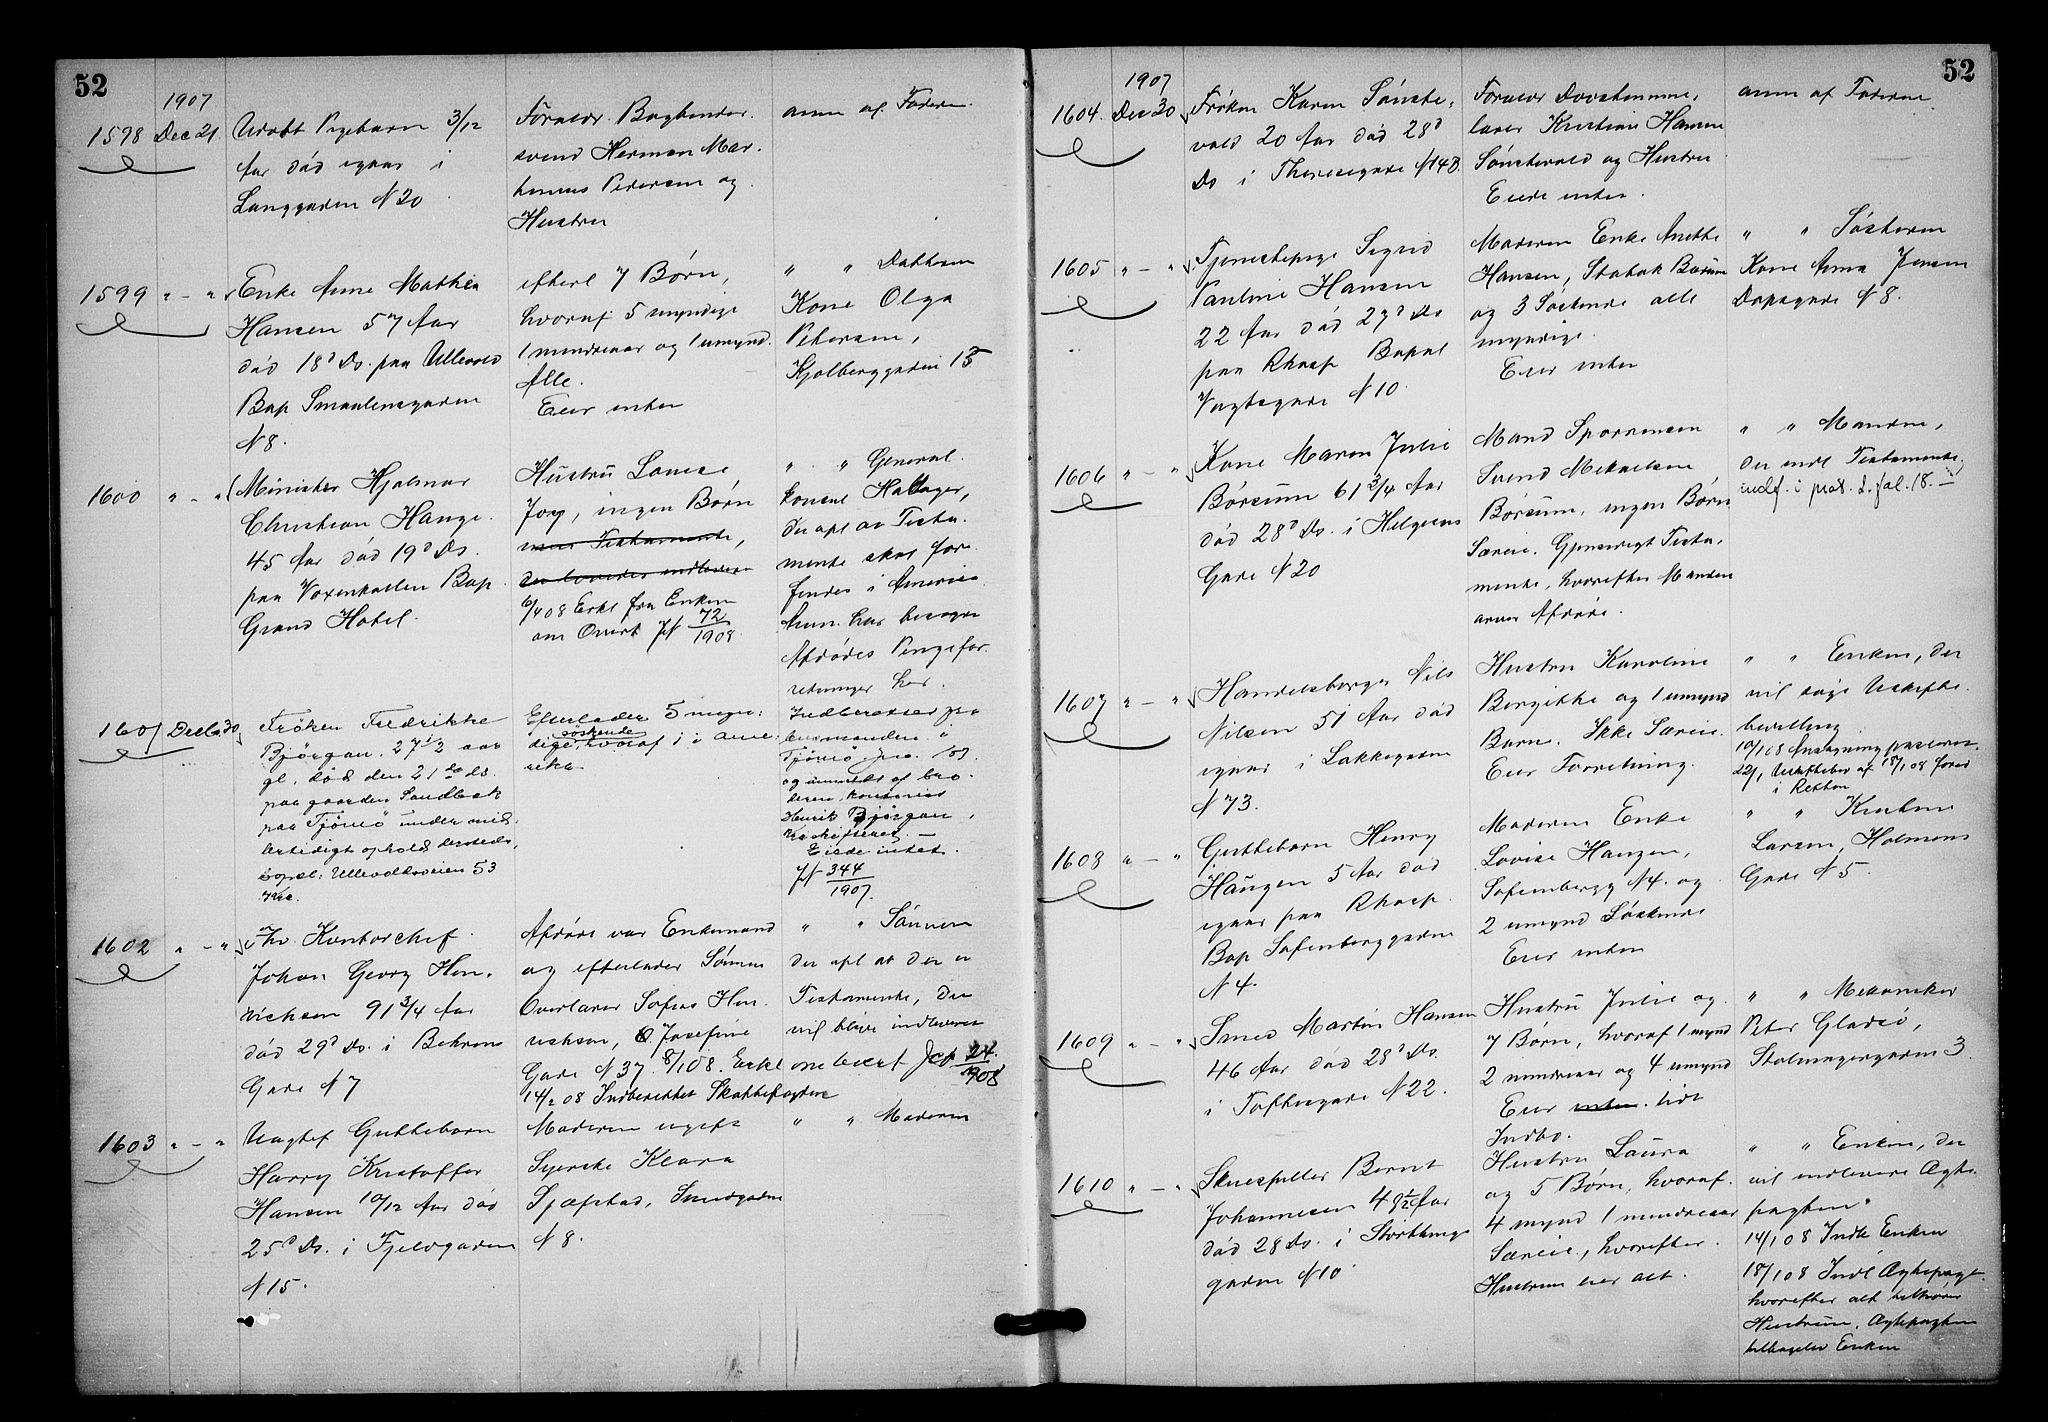 52
1907
1598 Dec 21.
Udøbt Pigebarn 3/12
Aar død igaar i
Langgaden N 20
Forældr. Bogbinder
svend Herman Mar-
hennes Pedersen og
Hustru
anm af Faderen.
1599 " - "
Enke Anne Mathea
Hansen 57 Aar
død 18d Ds. paa Ullevold
Bop Smaalensgaden
N 8.
efterl 7 Børn,
hvoraf 5 myndige
1 mindreaar og 1 umynd.
Alle.
Eier inten
" " Datteren
Kone Olga
Petersen,
Kjølberggaden 13
1600 " - "
Minister Hjalmar
Christian Hauge
45 Aar død 19d Ds.
paa Voxenkollen Bop
Grand Hotel.
Hustru Louise
Joy, ingen Børn
men Testamente,
der lovedes indleveret
6/4 08 Erkl fra Enken
om Overt JN 72/1908
" " General
konsul Hallager,
der opl at Testa-
mente skal for-
findes i Amerika
Anm. har besørget
Afdødes Pengefor-
retninger her.
1601 Decb. 30
Frøken Fredrikke
Bjørgan, 27 1/2 aar
gl. død den 21de ds.
paa gaarden Sandbæk
paa Tjømø under mid-
lertidigt ophold dersteds,
bopæl: Ullevoldsveien 53
Kra.
Efterlader 5 myn-
dige søskende, hvoraf 1 i Ame-
rika
Indberettet fra
lensmanden i
Tjømø
og anmeldt af bro-
deren, kontorist
Henrik Bjørgan,
Eiede intet.
JN 344/1907.
1602 " - "
fhv. Kontorchef
Johan Georg Hen-
richsen 91 3/4 Aar
død 29d Ds. i Behrens
Gade N 7
Afdøde var Enkemand
og efterlader Sønnen
Overlærer Sofus Hen-
richsen, Josefine
Gade N 37. 8/1 08. Erkl om overt Jcp 24/1908
14/2 08 Indberettet Skattefogden
" " Sønnen
der opl at der er
Testamente, der
vil blive indleveret
1603 " - "
Uægtef Guttebarn
Harry Kristoffer
Hansen 10/12 Aar død
25d Ds. i Fjeldgaden
N 15.
Moderen ugift
Syerske Klara
Sjæfstad, Smedgaden
N 8.
" " Moderen
52
1907
1604. Dec 30
Frøken Karen Sønste-
vold 20 Aar død 28d
Ds i Theresegade N 48.
Forældr Døvstumme-
lærer Kristian Hansen
Sønstevold og Hustru
Eiede inten.
anm af Faderen
1605 " - "
Tjenestepige Sigrid
Pauline Hansen
22 Aar død 27d Ds
paa Rhosp Bopæl
Vogtsgade N 10.
Moderen Enke Anethe
Hansen, Stabæk Bærum
og 3 Søskende alle
myndige.
Eier inten
" " Søsteren
Kone Anna Jensen
Dopsgade N 8.
1606 " - "
Kone Maren Julie
Børsum 61 3/4 Aar
død 28d Ds. i Helgesens
Gade N 20
Mand Spornmand
Svend Mikaelsen
Børsum, ingen Børn
Særeie. Gjensidigt Testa-
mente, hvorefter Manden
arver Afdøde.
" " Manden,
der indl Testamente,
indf. i prot. L. fol. 18. —
1607 " - "
Handelsborger Nils
Nilsen 51 Aar død
igaar i Lakkegaden
N 73.
Hustru Karoline
Bergitte og 1 umynd
Barn. Ikke Særeie.
Eier Forretning.
" " Enken, der
vil søge Uskifte-
bevilling
10/1 08 Ansøgning
22/1 Uskiftebev af 18/1 08 forev
i Retten
1608 " - "
Guttebarn Henry
Haugen 5 Aar død
igaar paa Rhosp.
Bop Sofienberggaden
N 4.
Moderen Enke
Lovise Haugen,
Sofienbergg N 4. og
2 umynd Søskende
Eier inten
" " Kristine
Larsen, Holmens
Gade N 5.
1609 " - "
Smed Martin Hansen
46 Aar død 28d Ds.
i Toftesgade N 22.
Hustru Julie og
7 Børn, hvoraf 1 mynd
2 mindreaar og 4 umynd
Eier inten. lidt
Indbo.
" " Mekaniker
Peter Gladsø,
Stolmagergaden 3.
1610 " - "
Skuespiller Bernt
Johannesen 49 1/2 Aar
død 28 Ds. i Storthings
gaden N 10
Hustru Laura
og 5 Børn, hvoraf
4 mynd 1 mindreaar
Særeie, hvorefter
Hustruen eier alt.
" " Enken, der
vil indlevere Ægte-
pagten
14/1 08 Indk Enken
18/1 08 Indl Ægtepagt
hvorefter alt tilhører
Hustruen. Ægtepagten
tilbagelev Enken